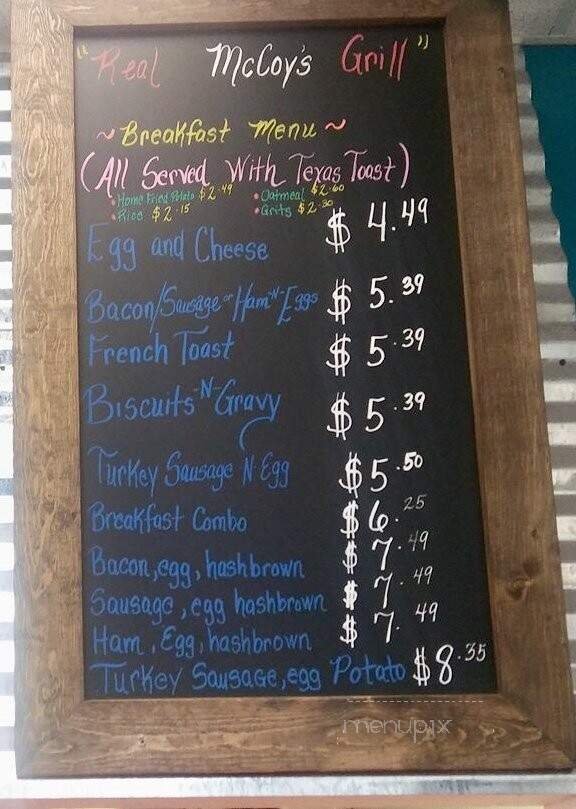 "Real McCoy's Grill"
~Breakfast Menu~
(All Served With Texas Toast)
•Home Fried Potato $2.49 •Oatmeal $2.60
•Rice $2.15 •Grits $2.30
Egg and Cheese $4.49
Bacon/Sausage or Ham-N-Eggs $5.39
French Toast $5.39
Biscuits-N-Gravy $5.39
Turkey Sausage N. Egg $5.50
Breakfast Combo $6.25
Bacon, egg, hashbrown $7.49
Sausage, egg hashbrown $7.49
Ham, Egg, hashbrown $7.49
Turkey Sausage, egg Potato $8.35
menupix